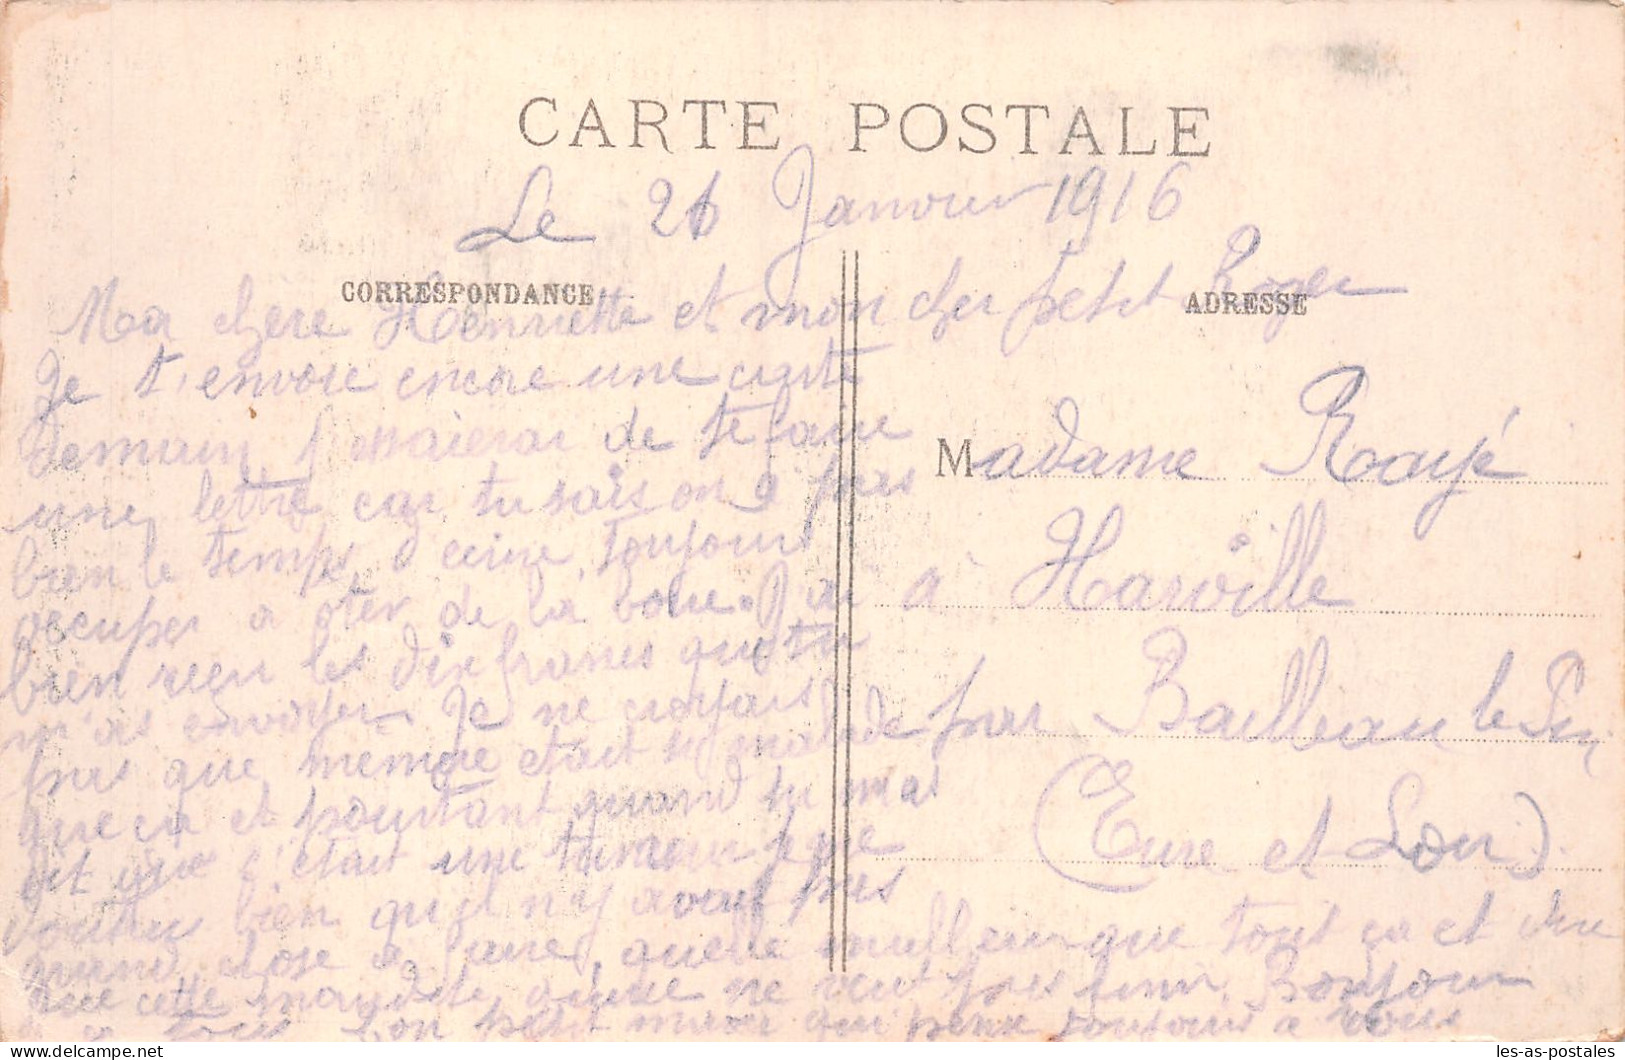 CARTE POSTALE
Le 26 Janvier 1916
CORRESPONDANCE
ADRESSE
Ma chere Henriette et mon cher petit Roger
Je t'envoie encore une carte
demain j'essaierai de te faire
une lettre car tu sais on a pas
bien le temps d'ecrire toujours
occuper a oter de la boue. J'ai
bien reçu les dix francs que tu
m'as envoyer. Je ne croyais
pas que mémère etait si malade
que ça et pourtant quand tu m'as
dit que c'était une tumeur je me
doutais bien qu'il n'y avait pas
grand chose a faire, quelle malheur que tout ça et dire
que cette maudite guerre ne veut pas finir. Bonjour
a tous Ton petit mari qui pense toujours a vous
Madame Rayé
a Harville
par Bailleau le Pin
(Eure et Loir)
les-as-postales